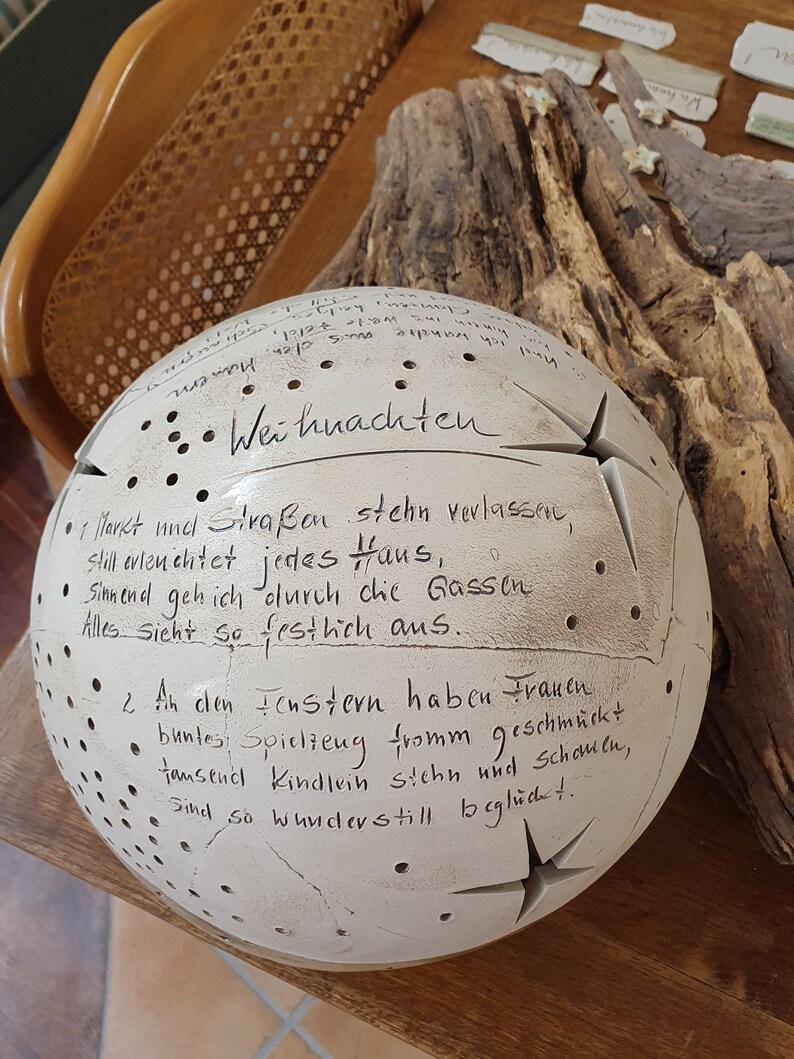 Weihnachten
1 Markt und Straßen stehn verlassen,
still erleuchtet jedes Haus,
Sinnend geh ich durch die Gassen
Alles sieht so festlich aus.
2 An den Fenstern haben Frauen
buntes Spielzeug fromm geschmückt
tausend Kindlein stehn und schauen,
sind so wunderstill beglückt.
3. Und ich wandre aus den Mauern
bis hinaus ins weite Feld,